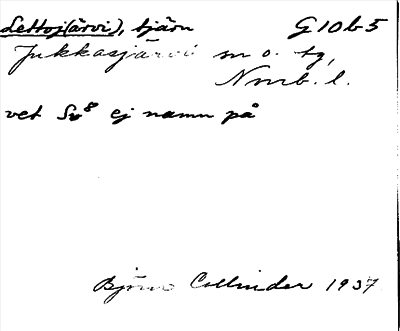 Lettoj(ärvi), tjärn G10b5
Jukkasjärvi sn o. tg,
Nrrb. l.
vet Sv8 ej namn på
Björn Collinder 1937